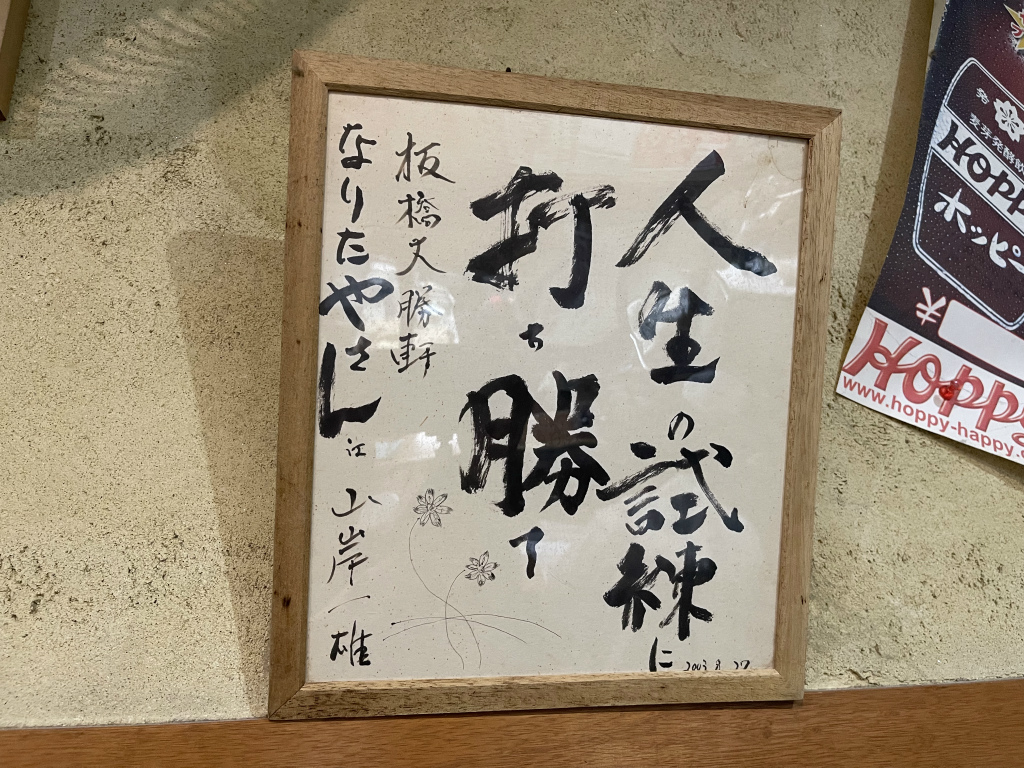 人生の試練に
打ち勝て
板橋大勝軒
なりたやさん江
山岸一雄
2003 8 27
発
麦芽発酵飲
HOPP
ホッピー
HOPPY
www.hoppy-happy.c